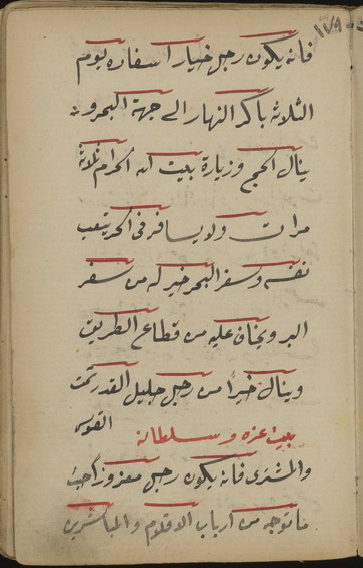 ١٧٩
فانه يكون رجل خيار اسفاره يوم
الثلاثة باكر النهار الى جهة البحر و
ينال الحج وزيارة بيت الله الحرام ثلاثة
مرات ولا يسافر فى الحر يتعب
نفسه وسفر البحر خير له من سفر
البر ويخاف عليه من قطاع الطريق
وينال خيرًا من رجل جليل القدر تمت
القوس
بيت عزه وسلطانه
والمشترى فانه يكون رجل معزوز احيث
ما توجه من ارباب الاقلام والمباشرين